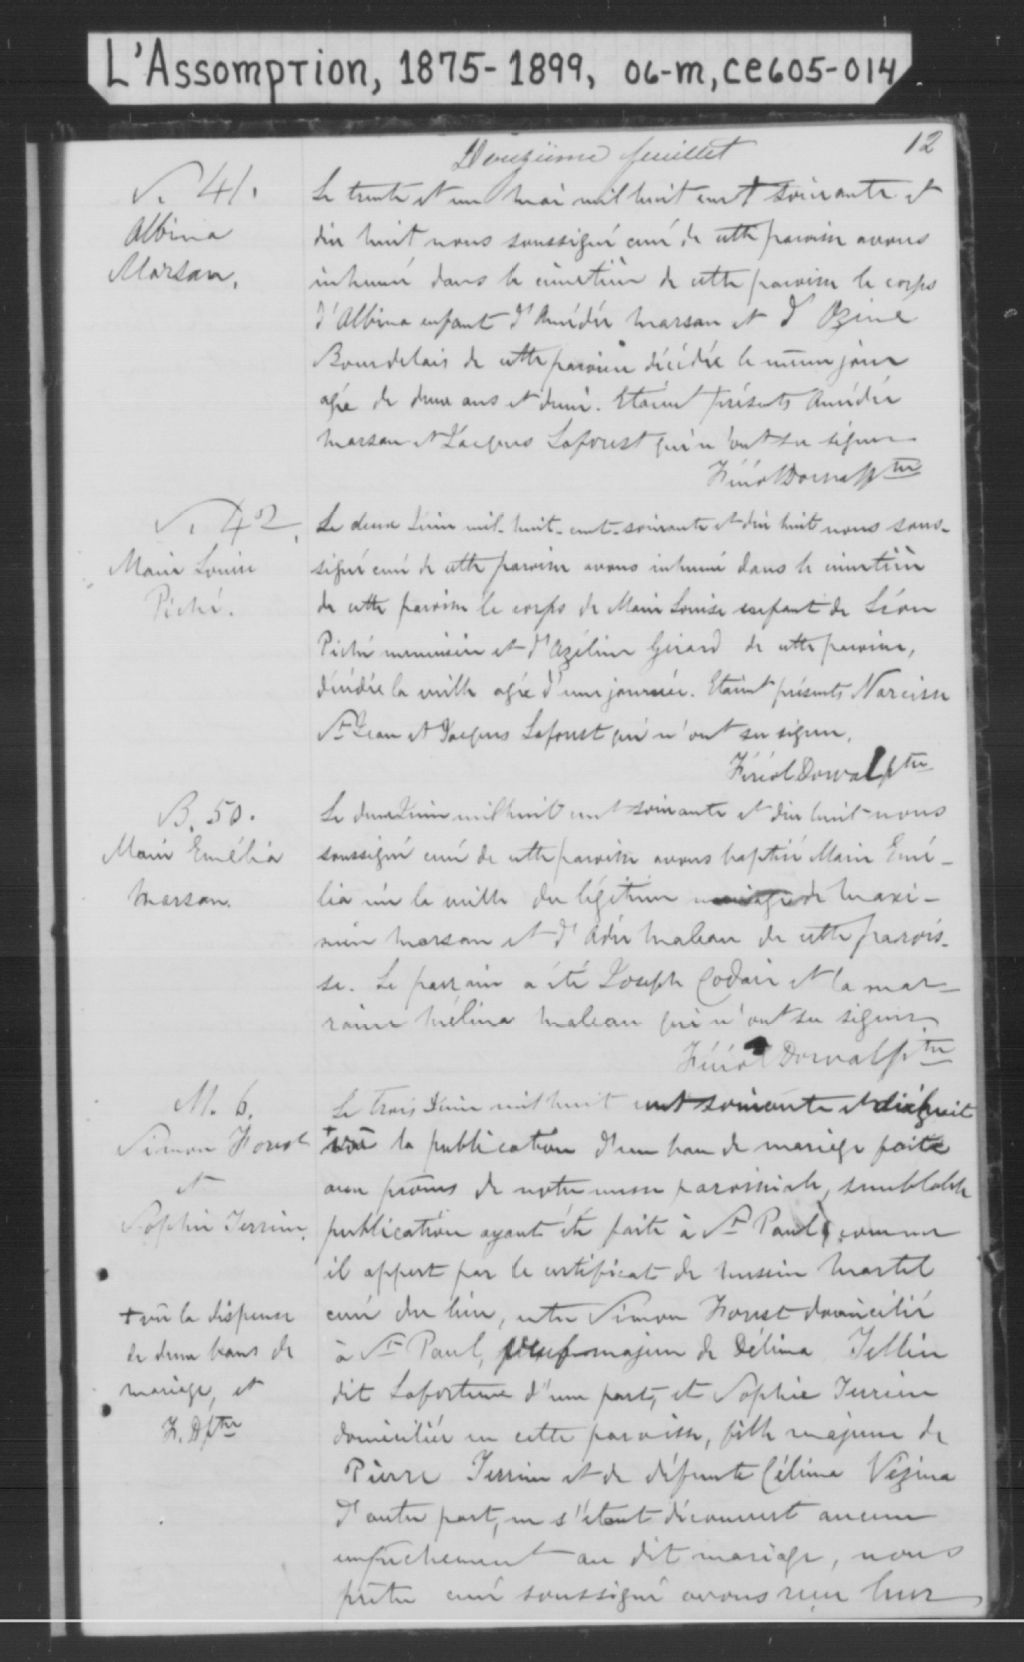 L'Assomption, 1875-1899, 06-m, ce605-014
Douzième feuillet
12
S. 41.
Albina
Marsan.
Le trente et un Mai mil huit cent soixante et
dix huit nous soussigné curé de cette paroisse avons
inhumé dans le cimetière de cette paroisse le corps
d'Albina enfant d'Amédée Marsan et d'Ozine
Bourdelais de cette paroisse décédée le même jour
agée de deux ans et demi. Etaient présents Amédée
Marsan et Jacques Laforest qui n'ont su signer
Féréol Dorval ptre
S. 42.
Marie Louise
Piché.
Le deux Juin mil-huit-cent-soixante et dix huit nous sous-
signé curé de cette paroisse avons inhumé dans le cimetière
de cette paroisse le corps de Marie Louise enfant de Léon
Piché menuisier et d'Azéline Girard de cette paroisse,
décédée la veille agée d'une journée. Etaient présents Narcisse
St Jean et Jacques Laforest qui n'ont su signer.
Féréol Dorval ptre
B. 50.
Marie Emélia
Marsan.
Le deux Juin mil huit cent soixante et dix huit nous
soussigné curé de cette paroisse avons baptisé Marie Emé-
lia née la veille du légitime mariage de Maxi-
min Marsan et d'Adée Maleau de cette parois-
se. Le parrain a été Joseph Codair et la mar-
raine Mélina Maleau qui n'ont su signer
Féréol Dorval ptre
M. 6.
Simon Forest
et
Sophie Terrien.
Le trois Juin mil huit cent soixante et dix huit
+ vu la publication d'un ban de mariage faite
au prône de notre messe paroissiale, semblable
publication ayant été faite à St Paul, comme
il appert par le certificat de messire Martel
curé du lieu, entre Simon Forest domicilié
à St Paul, veuf majeur de Délima Jellin
dit Lafortune d'une part, et Sophie Terrien
domiciliée en cette paroisse, fille majeure de
Pierre Terrien et de défunte Célima Vézina
d'autre part, ne s'étant découvert aucun
empêchement au dit mariage, nous
prêtre curé soussigné avons reçu leur
+ vu la dispense
de deux bans de
mariage, et
F. D ptre